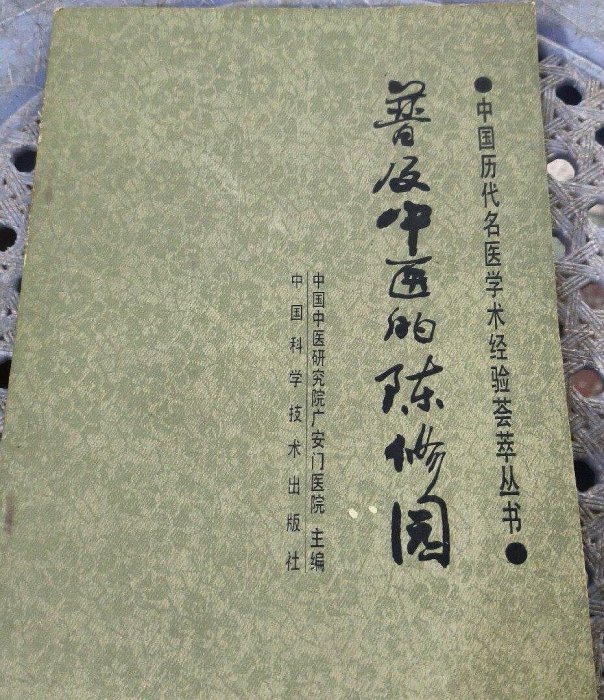 中国历代名医学术经验荟萃丛书
普及中医的陈修园
中国中医研究院广安门医院 主编
中国科学技术出版社